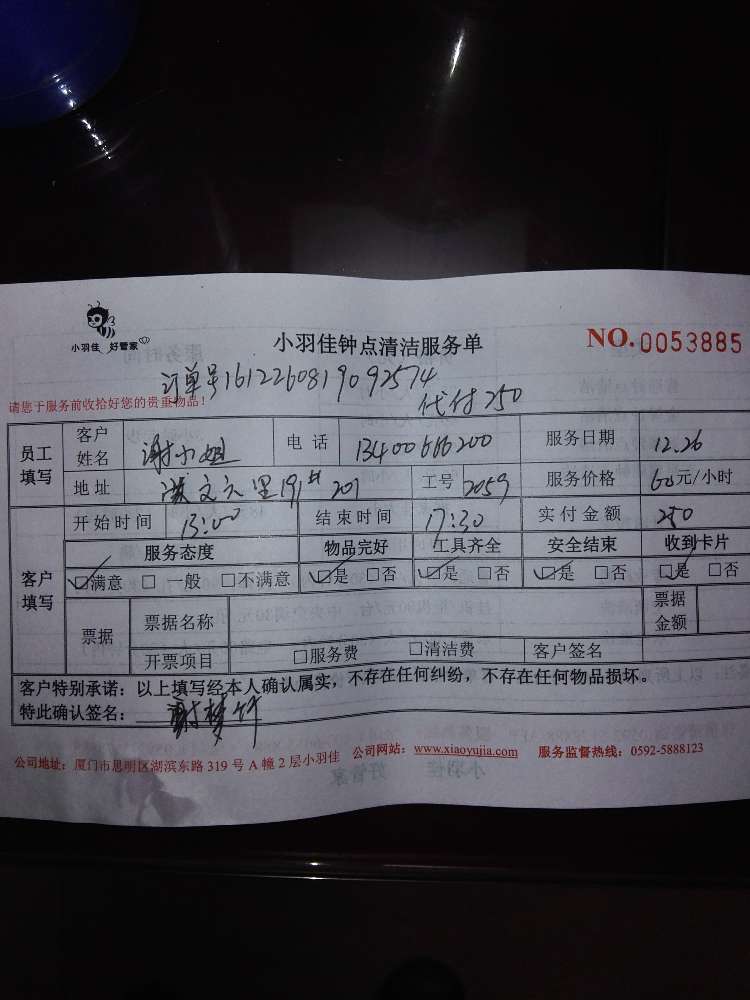 小羽佳 好管家
小羽佳钟点清洁服务单
NO.0053885
订单号1612260819092574
请您于服务前收拾好您的贵重物品！
代付250
员工填写 客户姓名 谢小姐 电话 13400666200 服务日期 12.26
地址 洪文六里191# 201 工号 2059 服务价格 60元/小时
客户填写 开始时间 13:00 结束时间 17:30 实付金额 250
服务态度 物品完好 工具齐全 安全结束 收到卡片
☑满意 □一般 □不满意 ☑是 □否 ☑是 □否 ☑是 □否 ☑是 □否
票据 票据名称 票据金额
开票项目 □服务费 □清洁费 客户签名
客户特别承诺：以上填写经本人确认属实，不存在任何纠纷，不存在任何物品损坏。
特此确认签名：谢梦
公司地址：厦门市思明区湖滨东路319号A幢2层小羽佳 公司网站：www.xiaoyujia.com 服务监督热线：0592-5888123